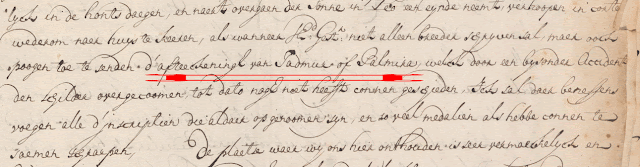 lyck in de honts daegen, en naest overgaen der sonne in Leo een eynde neemt, verhoopen in corte
wederom naer huys te keeren, als wanneer Ho: Gestr: niet alleen breeder schryven sal, maer oock
poogen toe te senden d'afteeckeningh van Tadmur of Palmira, welck door een bysonder Accident
den schilder overgecoomen, tot dato nogh niet heeft connen geschieden. Ick sal daer benessens
voegen alle d'inscriptien die aldaer opgenoomen syn, en so veel medalien als hebbe connen te
saemen schraepen, De plaets waer wy ons hier onthouden is seer vermaeckelyck en